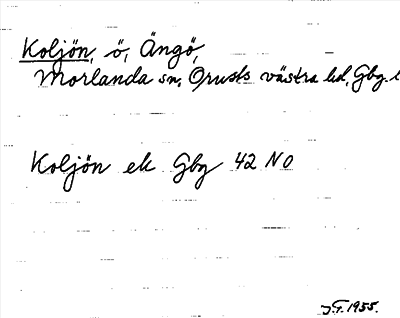 Koljön, ö, Ängö,
Morlanda sn, Orusts västra hd, Gbg. l
Koljön ek Gbg 42 NO
J.G. 1955.